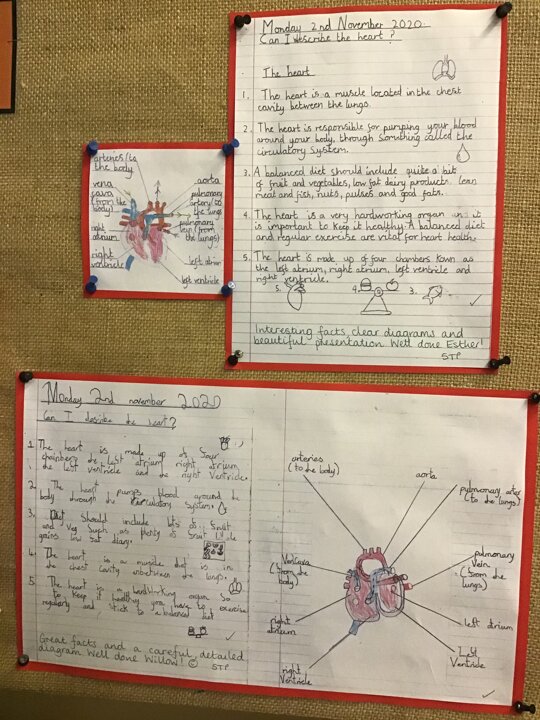 Monday 2nd November 2020.
Can I describe the heart?
The heart
1. The heart is a muscle located in the chest
cavity between the lungs.
2. The heart is responsible for pumping your blood
around your body, through something called the
circulatory system.
3. A balanced diet should include quite a bit
of fruit and vegetables, low fat dairy products. lean
meat and fish, nuts, pulses and good fats.
4. The heart is a very hardworking organ it
is important to keep it healthy. A balanced diet
and regular exercise are vital for heart health.
5. The heart is made up of four chambers kown as
the left atrium, right atrium, left ventricle and
right ventricle.
5. 4. 3.
Interesting facts, clear diagrams and
beautiful presentation. Well done Esther!
STP
arteries (to
the body
vena
cava
(from the
body)
right
atrium
right
ventricle
aorta
pulmonary
artery (to
the lungs
pulmonary
vein (from
the lungs)
left atrium
left ventricle
Monday 2nd november 2020
Can I describe the heart?
1. The heart is made up of four
chambers the left atrium right atrium
the left ventricle and the right Ventricle.
2. The heart pumps blood around the
body through the circulatory system.
3. Diet should include lots of fruit
and veg such as plenty of fruit
gains low fat diary.
4. The heart is a muscle that is in
the chest cavity inbetween the lungs.
5. The heart is a hardworking organ so
to keep it healthy you have to exercise
regulary and stick to a balance diet
Great facts and a careful, detailed
diagram Well done Willow!
STP
arteries
(to the body)
aorta
pulmonary
(to the lungs)
(from the
body)
pulmonary
Vein
(from the
lungs)
right
atrium
left atrium
right
Ventricle
Left
Ventricle